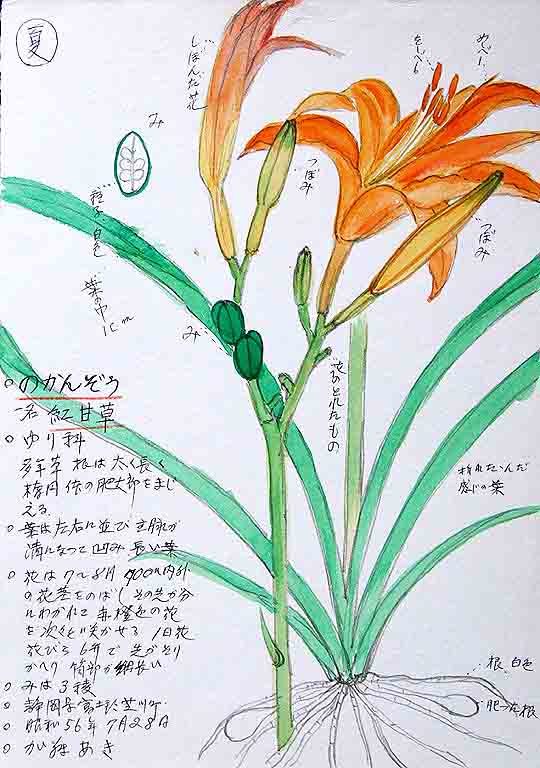 夏
しぼんだ花
おしべ
めしべ
み
つぼみ
つぼみ
種子 白色
葉の巾 1cm
み
花のとれたもの
折れたかんじ
感じの葉
。のかんぞう
一名 紅甘草
。ゆり科
多年草 根は太く長く
楕円体の肥大部をまじ
える
。葉は左右に並び主脈が
溝になって凹み長い葉
。花は7〜8月 700m内外
の花茎をのばし その先が分
れわかれて 赤橙色の花
を次々と咲かせる 1日花
花びら 6弁で 先がそり
かへり 筒部が細長い
。みは3稜
。静岡県富士郡芝川町
。昭和56年7月28日
。あき
根 白色
肥った根